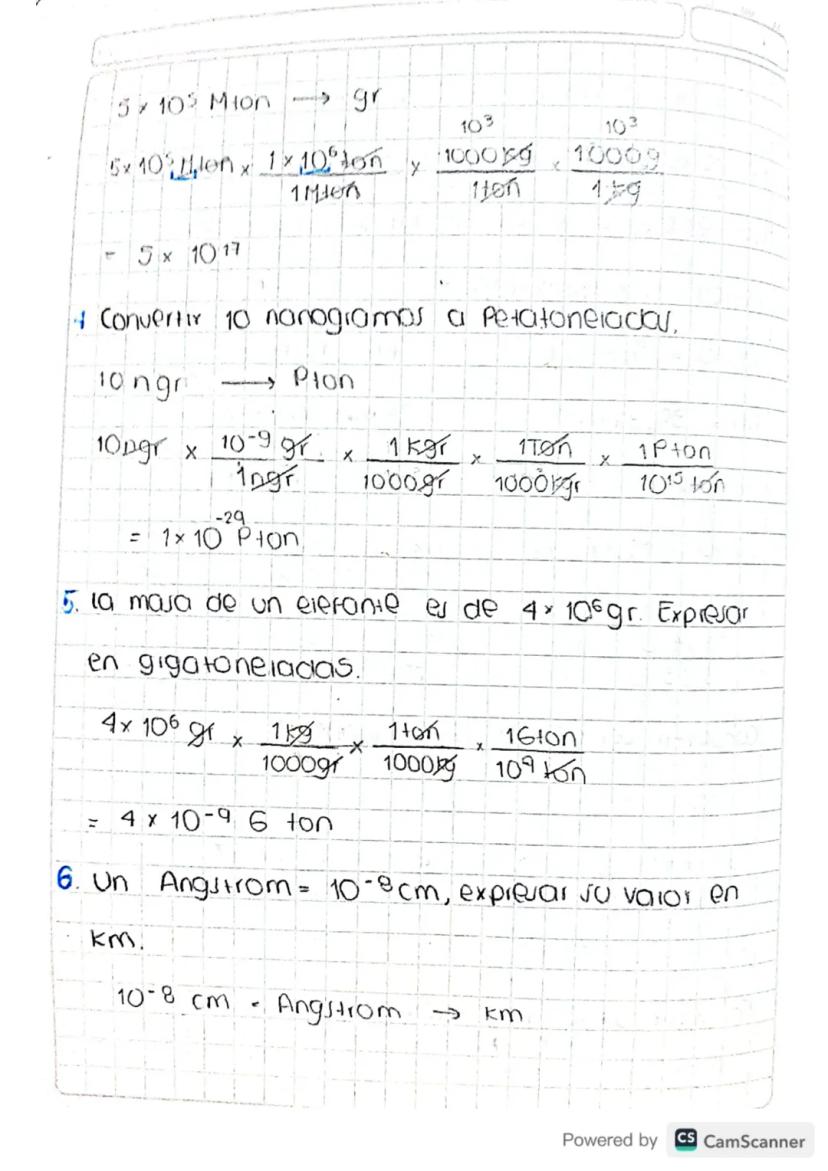 5 × 10⁵ Mton → gr
10³ 10³
5 × 10⁵ Mton × 1 × 10⁶ ton / 1 Mton × 1000 kg / 1 ton × 1000 g / 1 kg
= 5 × 10¹⁷
4 Convertir 10 nanogramos a Petatoneladas.
10 ngr → Pton
10 ngr × 10⁻⁹ gr / 1 ngr × 1 kgr / 1000 gr × 1 Ton / 1000 kgr × 1 Pton / 10¹⁵ ton
= 1 × 10⁻²⁹ Pton
5. la masa de un elefante es de 4 × 10⁶ gr. Expresar
en gigatoneladas.
4 × 10⁶ gr × 1 kg / 1000 gr × 1 ton / 1000 kg × 1 Gton / 10⁹ ton
= 4 × 10⁻⁹ G ton
6. Un Angstrom = 10⁻⁸ cm, expresar su valor en
km.
10⁻⁸ cm = Angstrom → km
Powered by CS CamScanner